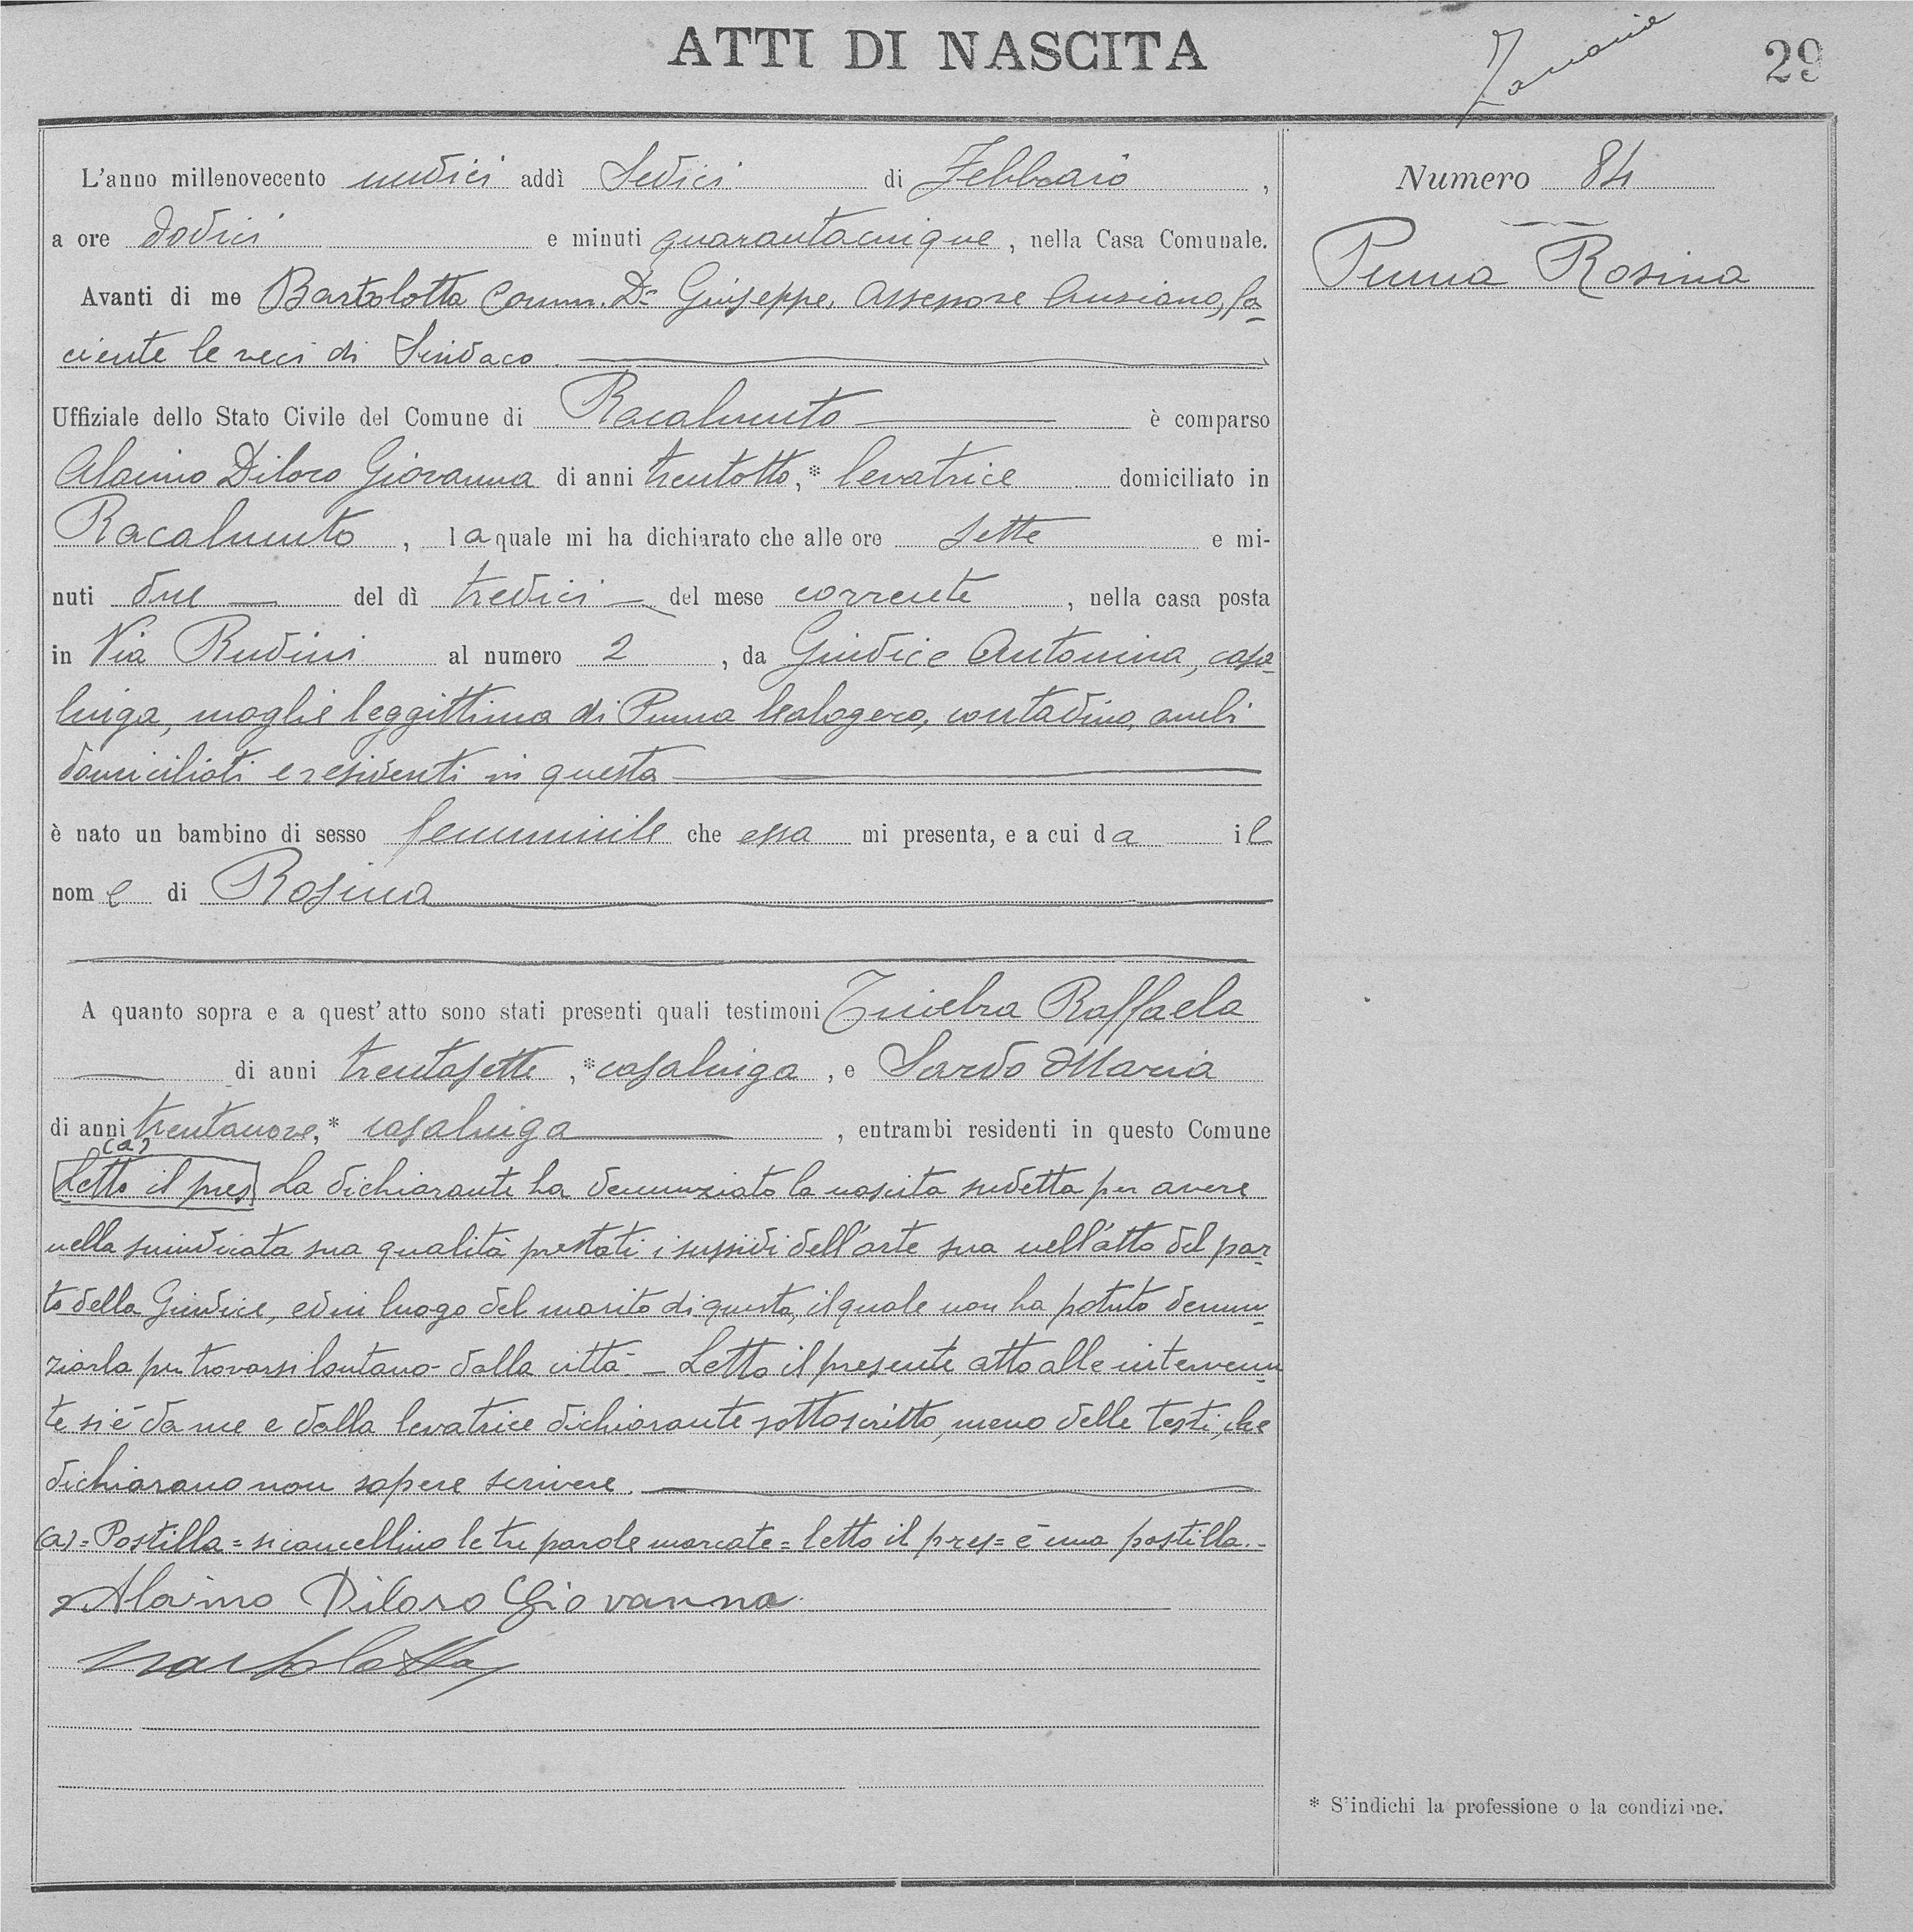 ATTI DI NASCITA
29
L'anno millenovecento undici addì Sedici di Febbraio,
a ore dodici e minuti quarantacinque, nella Casa Comunale.
Avanti di me Bartolotta Comm. Dr Giuseppe, Assessore Anziano, fa-
ciente le veci di Sindaco
Uffiziale dello Stato Civile del Comune di Racalmuto è comparso
Alaimo Diloro Giovanna di anni trentotto,* levatrice domiciliato in
Racalmuto, la quale mi ha dichiarato che alle ore sette e mi-
nuti due del dì tredici del mese corrente, nella casa posta
in Via Rudini al numero 2, da Giudice Antonina, casa-
linga, moglie leggittima di Puma Calogero, contadino, ambi
domiciliati e residenti in questa
è nato un bambino di sesso femminile che essa mi presenta, e a cui da il
nome di Rosina
A quanto sopra e a quest'atto sono stati presenti quali testimoni Tinebra Raffaela
di anni trentasette,* casalinga, e Sardo Maria
di anni trentanove,* casalinga, entrambi residenti in questo Comune
(a)
Letto il pres La dichiarante ha denunziato la nascita sudetta per avere
nella suindicata sua qualità prestati i sussidi dell'arte sua nell'atto del par-
to della Giudice, ed in luogo del marito di questa, il quale non ha potuto denun-
ziarla per trovarsi lontano dalla città. - Letto il presente atto alle intervenu-
te si è da me e dalla levatrice dichiarante sottoscritto, meno delle testi, che
dichiarano non sapere scrivere.
(a) = Postilla = si cancellino le tre parole marcate = letto il pres = è una postilla. -
Alaimo Diloro Giovanna
Bartolotta
Numero 84
Puma Rosina
* S'indichi la professione o la condizione.